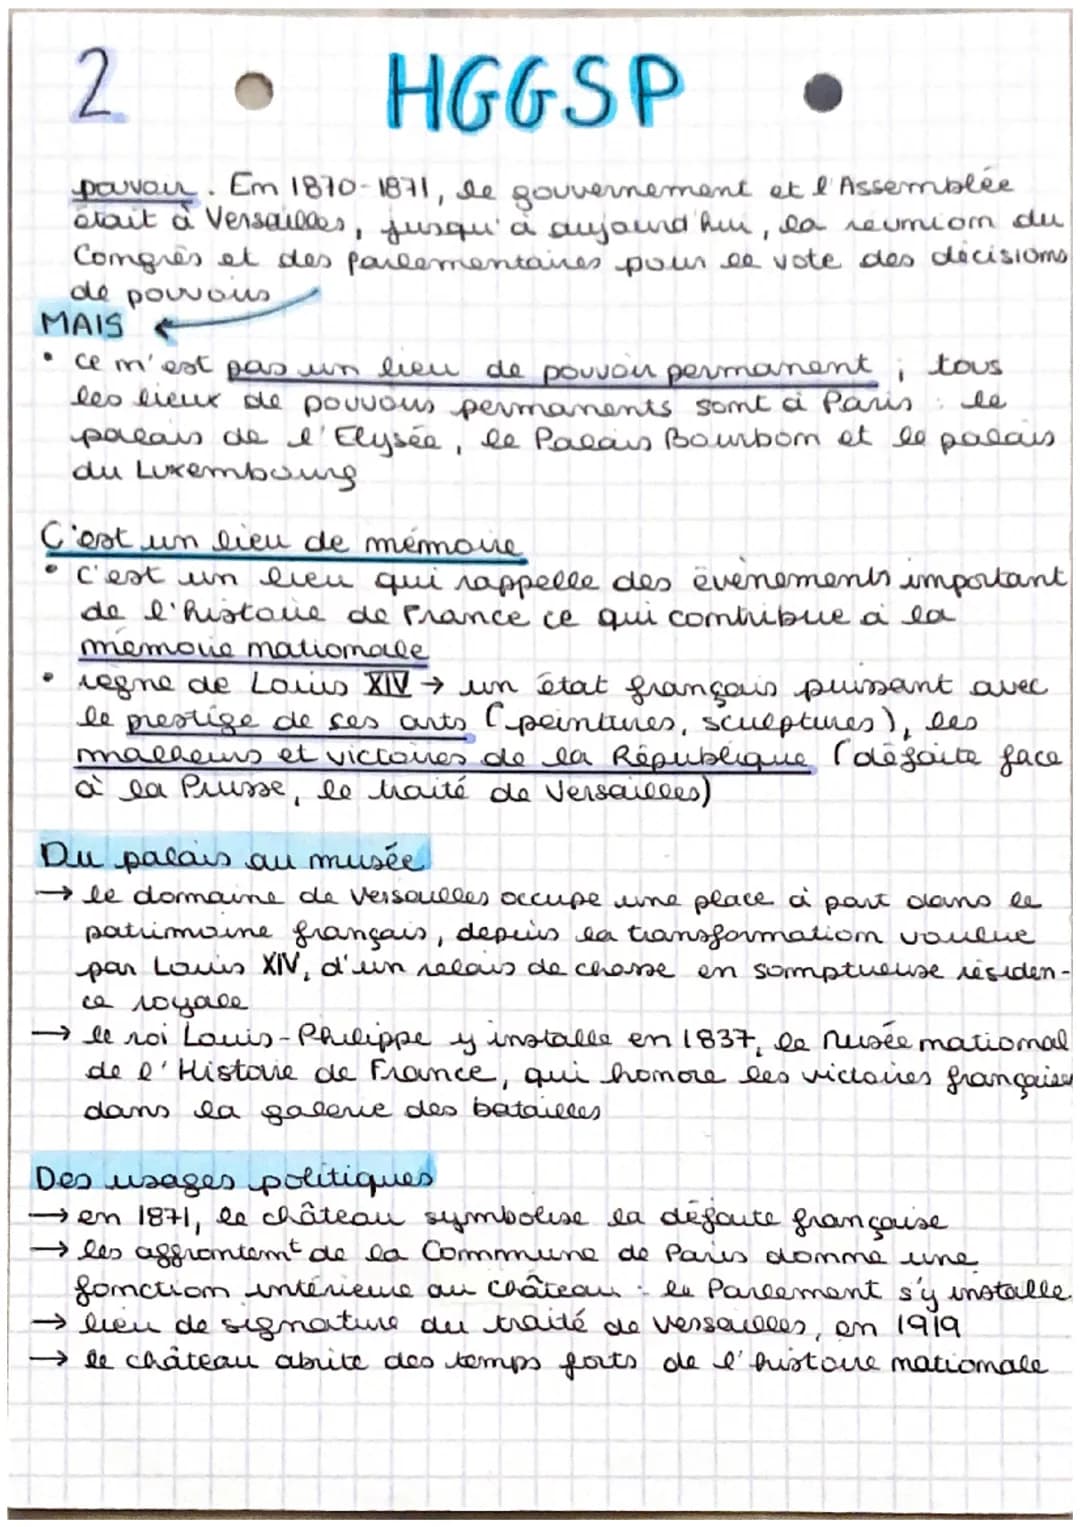 2 HGGSP
pouvoir. En 1870-1871, le gouvernement et l'Assemblée
était à Versailles, jusqu'à aujourd'hui, la réunion du
Congrès et des parlementaires pour le vote des décisions
de pouvoirs
MAIS
• ce n'est pas un lieu de pouvoir permanent ; tous
les lieux de pouvoirs permanents sont à Paris : le
palais de l'Elysée, le Palais Bourbon et le palais
du Luxembourg
C'est un lieu de mémoire
• c'est un lieu qui rappelle des évènements important
de l'histoire de France ce qui contribue à la
mémoire nationale
• règne de Louis XIV → un état français puissant avec
le prestige de ses arts (peintures, sculptures), les
malheurs et victoires de la République (défaite face
à la Prusse, le traité de Versailles)
Du palais au musée
→ le domaine de Versailles occupe une place à part dans le
patrimoine français, depuis la transformation voulue
par Louis XIV, d'un relais de chasse en somptueuse résiden-
ce royale
→ le roi Louis-Philippe y installe en 1837, le Musée national
de l'Histoire de France, qui honore les victoires françaises
dans la galerie des batailles
Des usages politiques
→ en 1871, le château symbolise la défaite française
→ les affrontemt de la Commune de Paris donne une
fonction intérieure au château : le Parlement s'y installe.
→ lieu de signature du traité de Versailles, en 1919
→ le château abrite des temps forts de l'histoire nationale